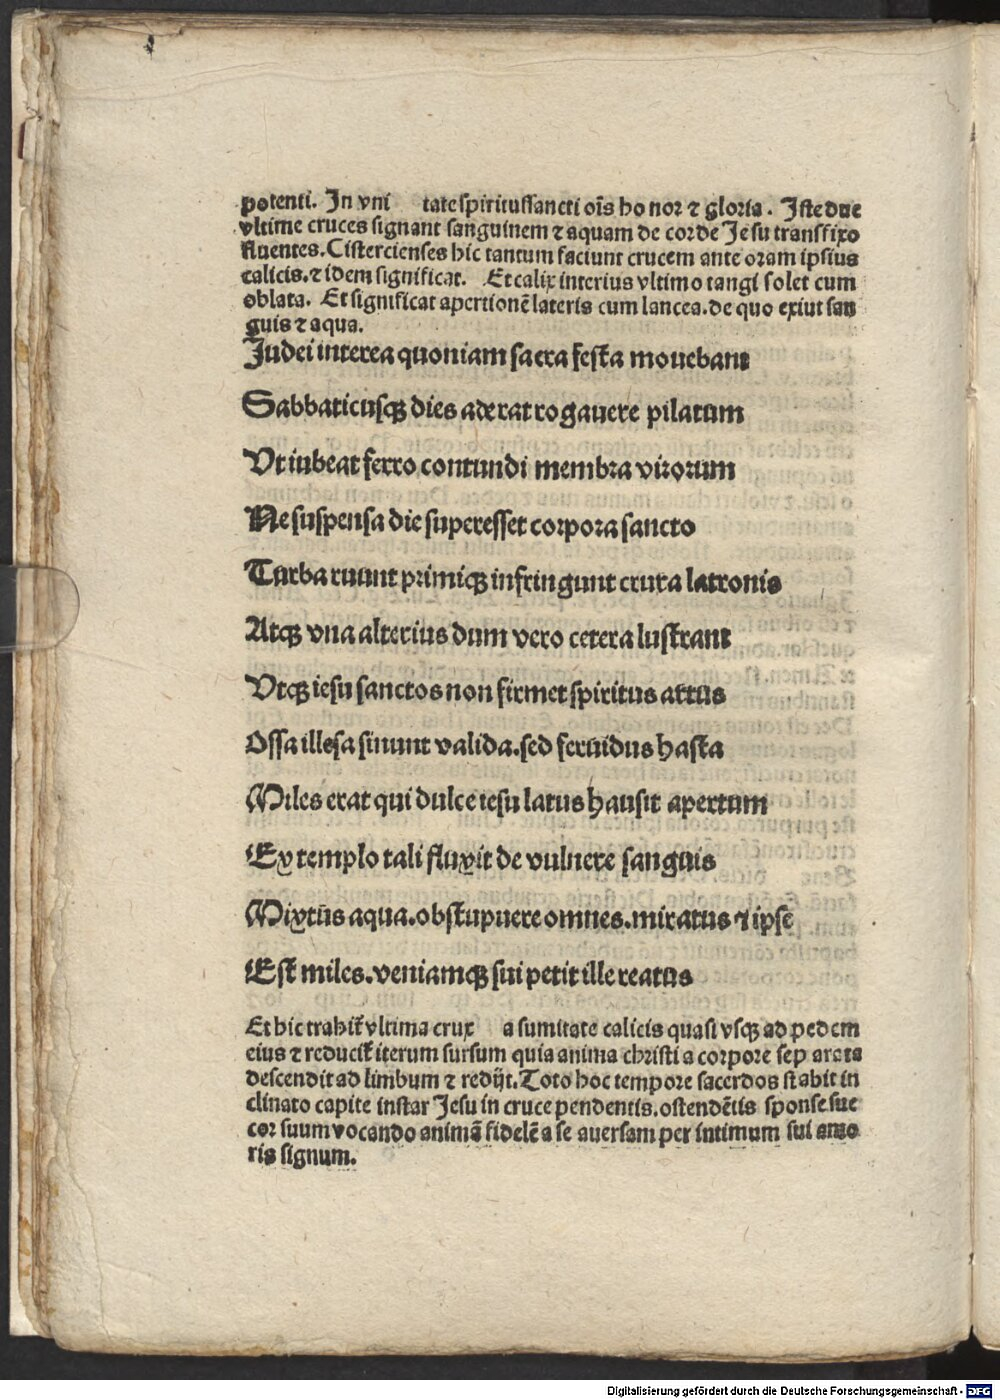 potenti. In vni tate spiritussancti oı̄s ho nor ⁊ gloria. Iste due
vltime cruces signant sanguinem ⁊ aquam de corde Iesu transfixo
fluentes. Cistercienses hic tantum faciunt crucem ante oram ipsius
calicis. ⁊ idem significat. Et calix interius vltimo tangi solet cum
oblata. Et significat apertionē lateris cum lancea. de quo exiut san
guis ⁊ aqua.
Iudei interea quoniam sacra festa mouebant
Sabbaticusqꝫ dies aderat rogauere pilatum
Vt iubeat ferro contundi membra virorum
Ne suspensa die superesset corpora sancto
Turba ruunt primiqꝫ infringunt crura latronis
Atqꝫ vna alterius dum vero cetera lustrant
Vtqꝫ iesu sanctos non firmet spiritus artus
Ossa illesa sinunt valida. sed feruidus hasta
Miles erat qui dulce iesu latus hausit apertum
Extemplo tali fluxit de vulnere sanguis
Mixtūs aqua. obstupuere omnes. miratus ⁊ ipse
Est miles. veniamqꝫ sui petit ille reatus
Et hic trahit̄ vltima crux a sumitate calicis quasi vsqꝫ ad pedem
eius ⁊ reducit̄ iterum sursum quia anima christi a corpore sep arata
descendit ad limbum ⁊ redijt. Toto hoc tempore sacerdos stabit in
clinato capite instar Iesu in cruce pendentis. ostendētis sponse sue
cor suum vocando animā fidelē a se auersam per intimum sui amo
ris signum.
Digitalisierung gefördert durch die Deutsche Forschungsgemeinschaft - DFG